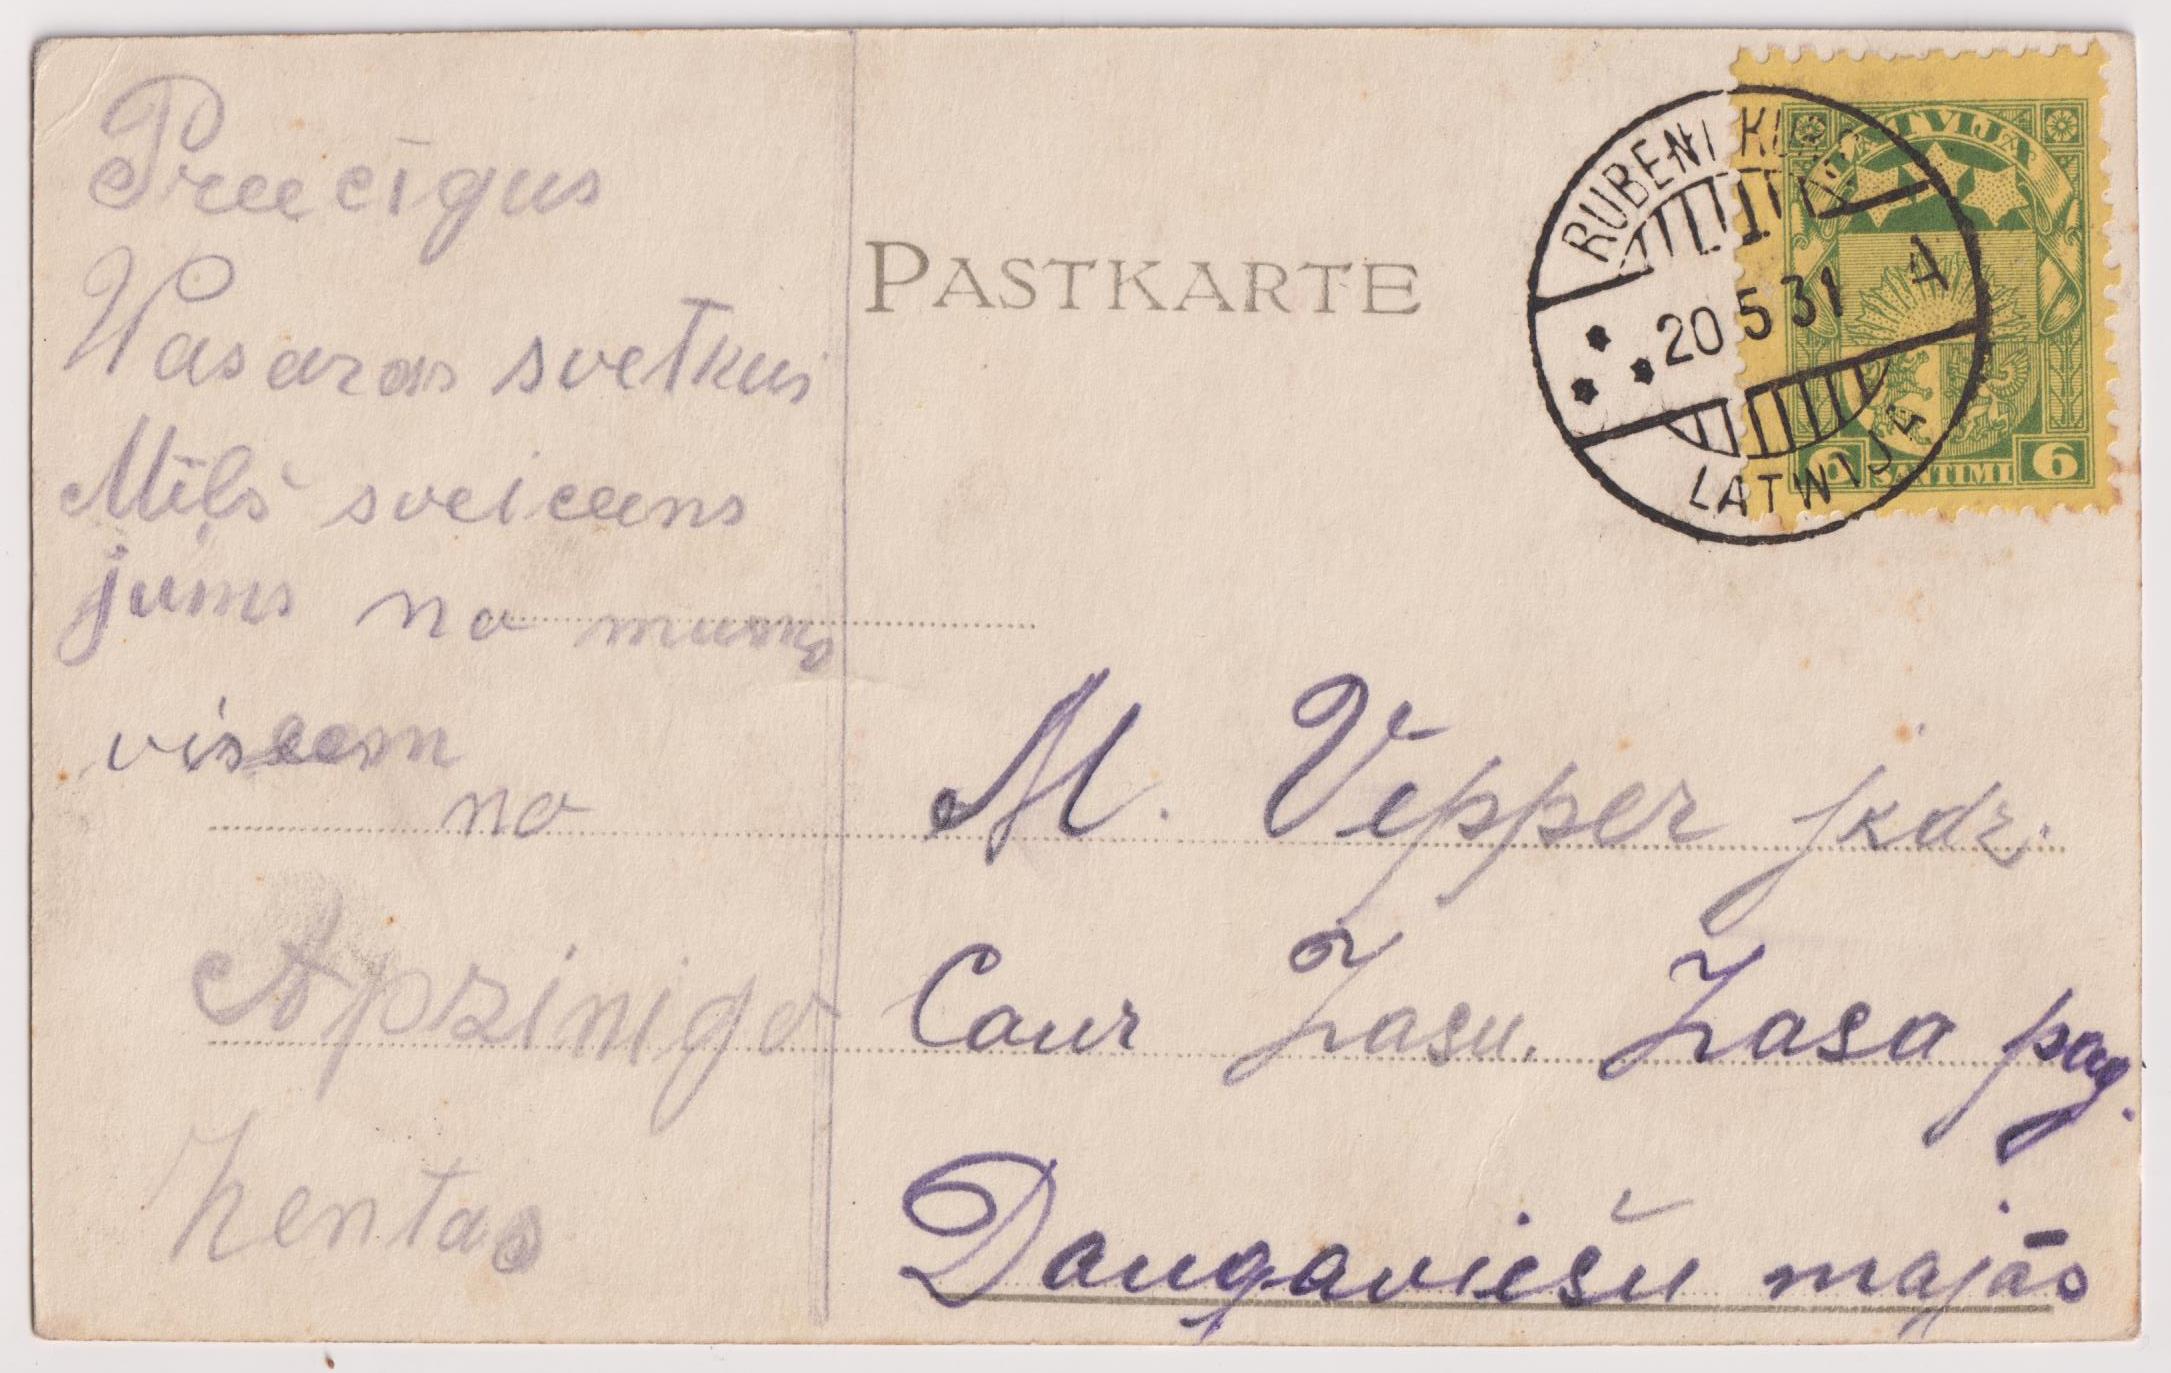 Preecīgus
Wasaras svetkus
Mīļš sveiceens
jums no mums
viseem
no
Apziniga
Zentas
PASTKARTE
RUBENI
20 5 31 A
LATWIJA
LATVIJA
6 SANTIMI 6
M. Vepper jkdz.
Caur Zasu. Zasa pag.
Daugaviešu majās